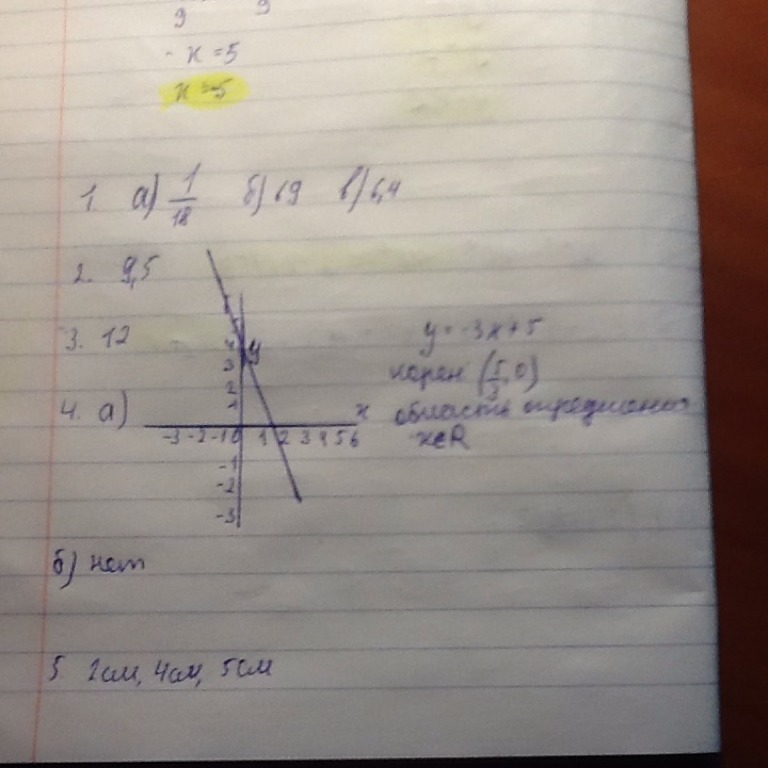 9 9
- x = 5
x = -5
1. а) 1/18 б) 69 в) 6,4
2. 9,5
3. 12
y = -3x+5
корен (5/3, 0)
4. а)
область определения
x∈R
y
x
5
4
3
2
1
-3 -2 -1 0 1 2 3 4 5 6
-1
-2
-3
б) нет
5 2см, 4см, 5см